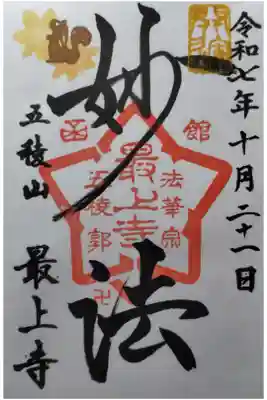 令和七年十月二十一日
妙法
函館
法華宗
最上寺
五稜郭
卍
五稜山 最上寺